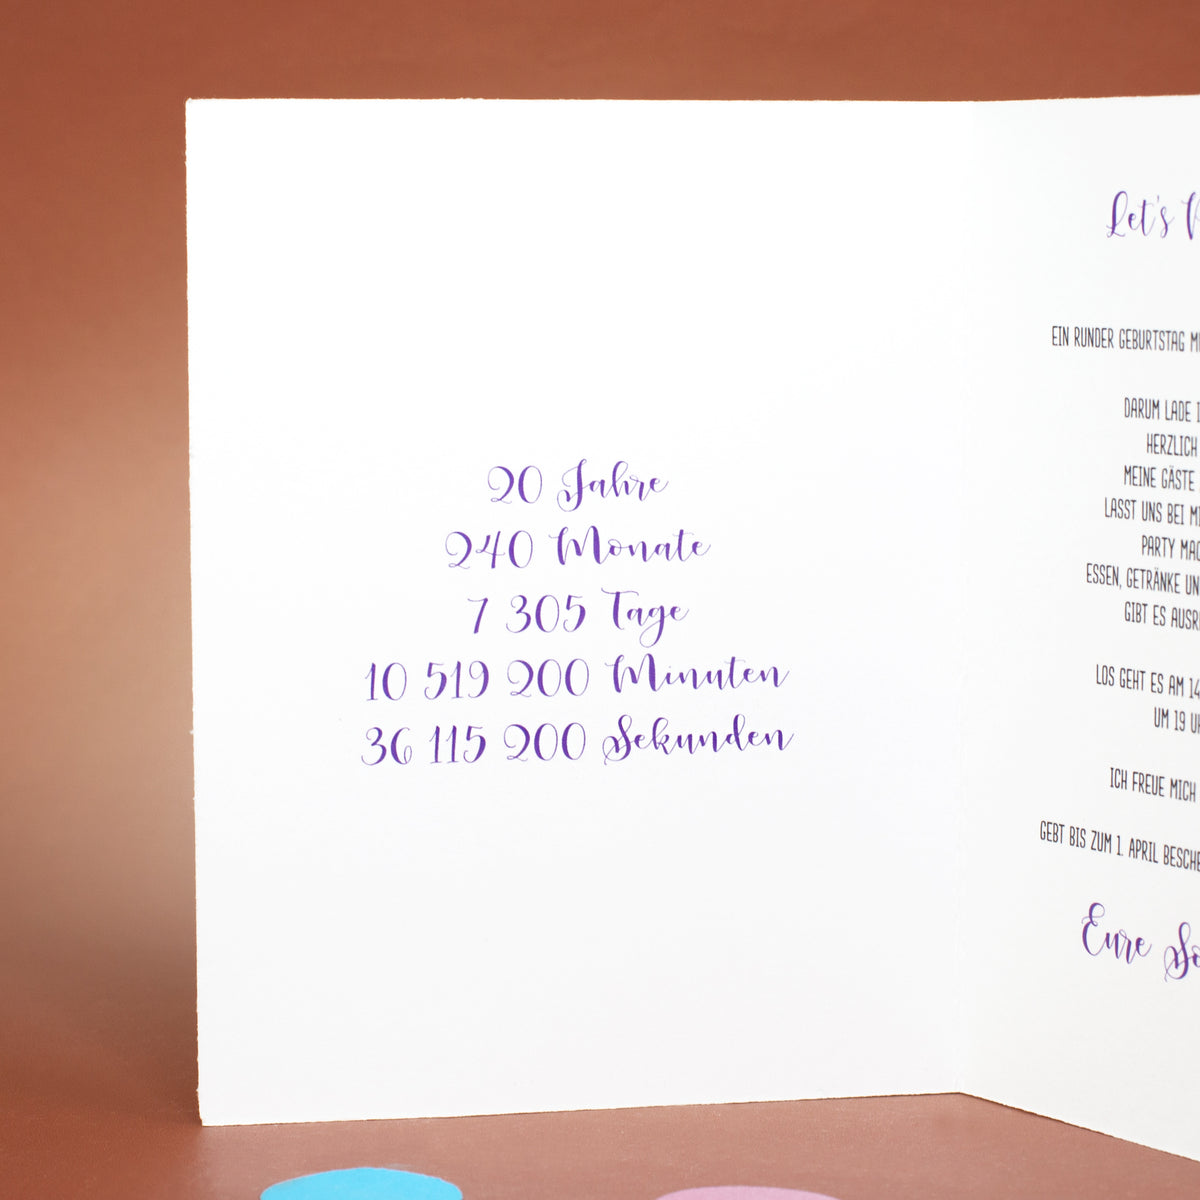 20 Jahre
240 Monate
7 305 Tage
10 519 200 Minuten
36 115 200 Sekunden
Let's
EIN RUNDER GEBURTSTAG
DARUM LADE
HERZLICH
MEINE GÄSTE
LASST UNS BEI
PARTY
ESSEN, GETRÄNKE
GIBT ES
LOS GEHT ES AM 14
UM 19
ICH FREUE MICH
GEBT BIS ZUM 1. APRIL
Eure